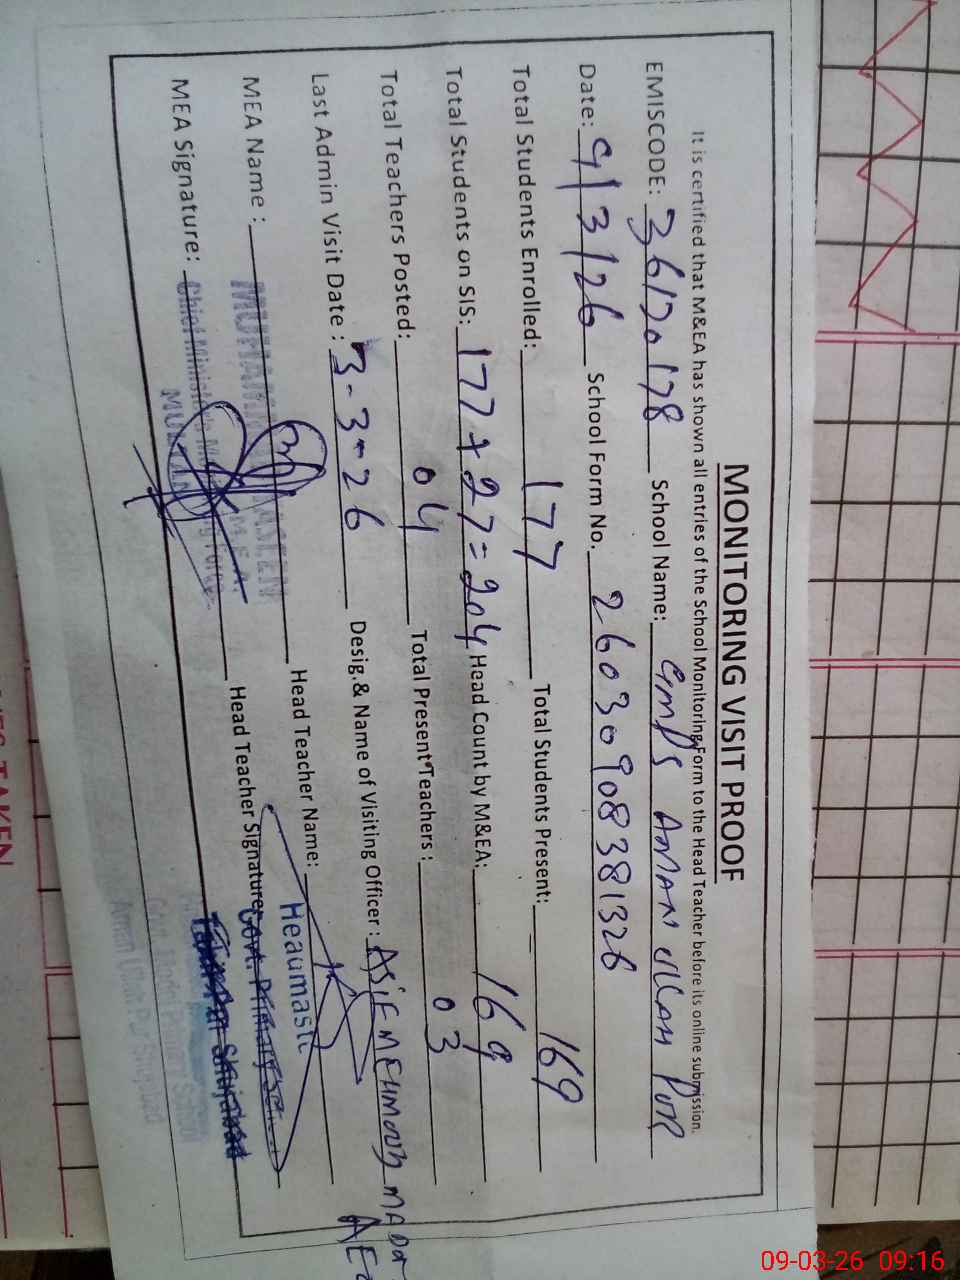 MONITORING VISIT PROOF
It is certified that M&EA has shown all entries of the School Monitoring Form to the Head Teacher before its online submission.
EMISCODE: 36120178 School Name: GMPS AMAN ULLAH PUR
Date: 9/3/26 School Form No. 26030908381326
Total Students Enrolled: 177 Total Students Present: 169
Total Students on SIS: 177+27=204 Head Count by M&EA: 169
Total Teachers Posted: 04 Total Present Teachers: 03
Last Admin Visit Date: 3-3-26 Desig.& Name of Visiting Officer: ASIF MEHMOOD
MEA Name: Head Teacher Name:
MEA Signature: Chief Minister's Head Teacher Signature: Govt. Primary
MULTAN
Shujabad
Govt. Model Primary School
Aman Ullah Pur Shujabad
TAKEN
09-03-26 09:16